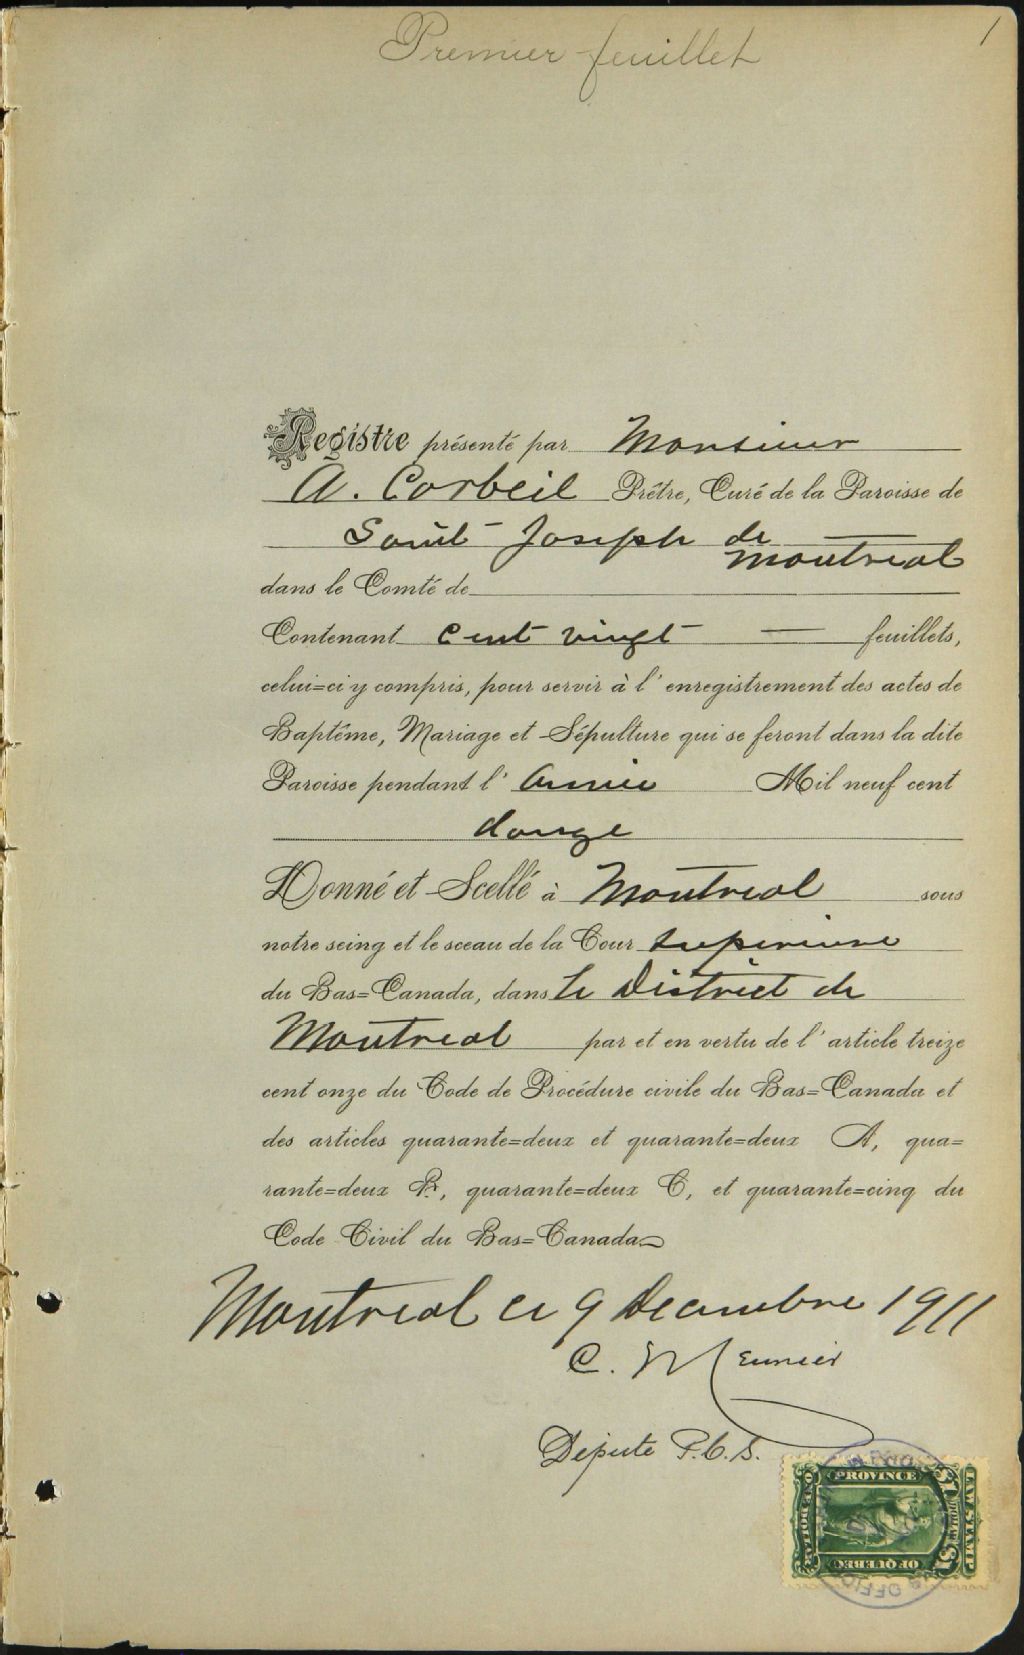 1
Premier feuillet
Registre présenté par Monsieur
A. Corbeil Prêtre, Curé de la Paroisse de
Saint-Joseph de Montreal
dans le Comté de
Contenant cent vingt — feuillets,
celui=ci y compris, pour servir à l'enregistrement des actes de
Baptême, Mariage et Sépulture qui se feront dans la dite
Paroisse pendant l'année Mil neuf cent
douze
Donné et Scellé à Montreal sous
notre seing et le sceau de la Cour superieure
du Bas=Canada, dans le District de
Montreal par et en vertu de l'article treize
cent onze du Code de Procédure civile du Bas=Canada et
des articles quarante=deux et quarante=deux A, qua=
rante=deux B, quarante=deux C, et quarante=cinq du
Code Civil du Bas=Canada
Montreal ce 9 Decembre 1911
C. Meunier
Député P.C.S.
PROVINCE
OF QUEBEC
LAW STAMP
ONE DOLLAR
$1